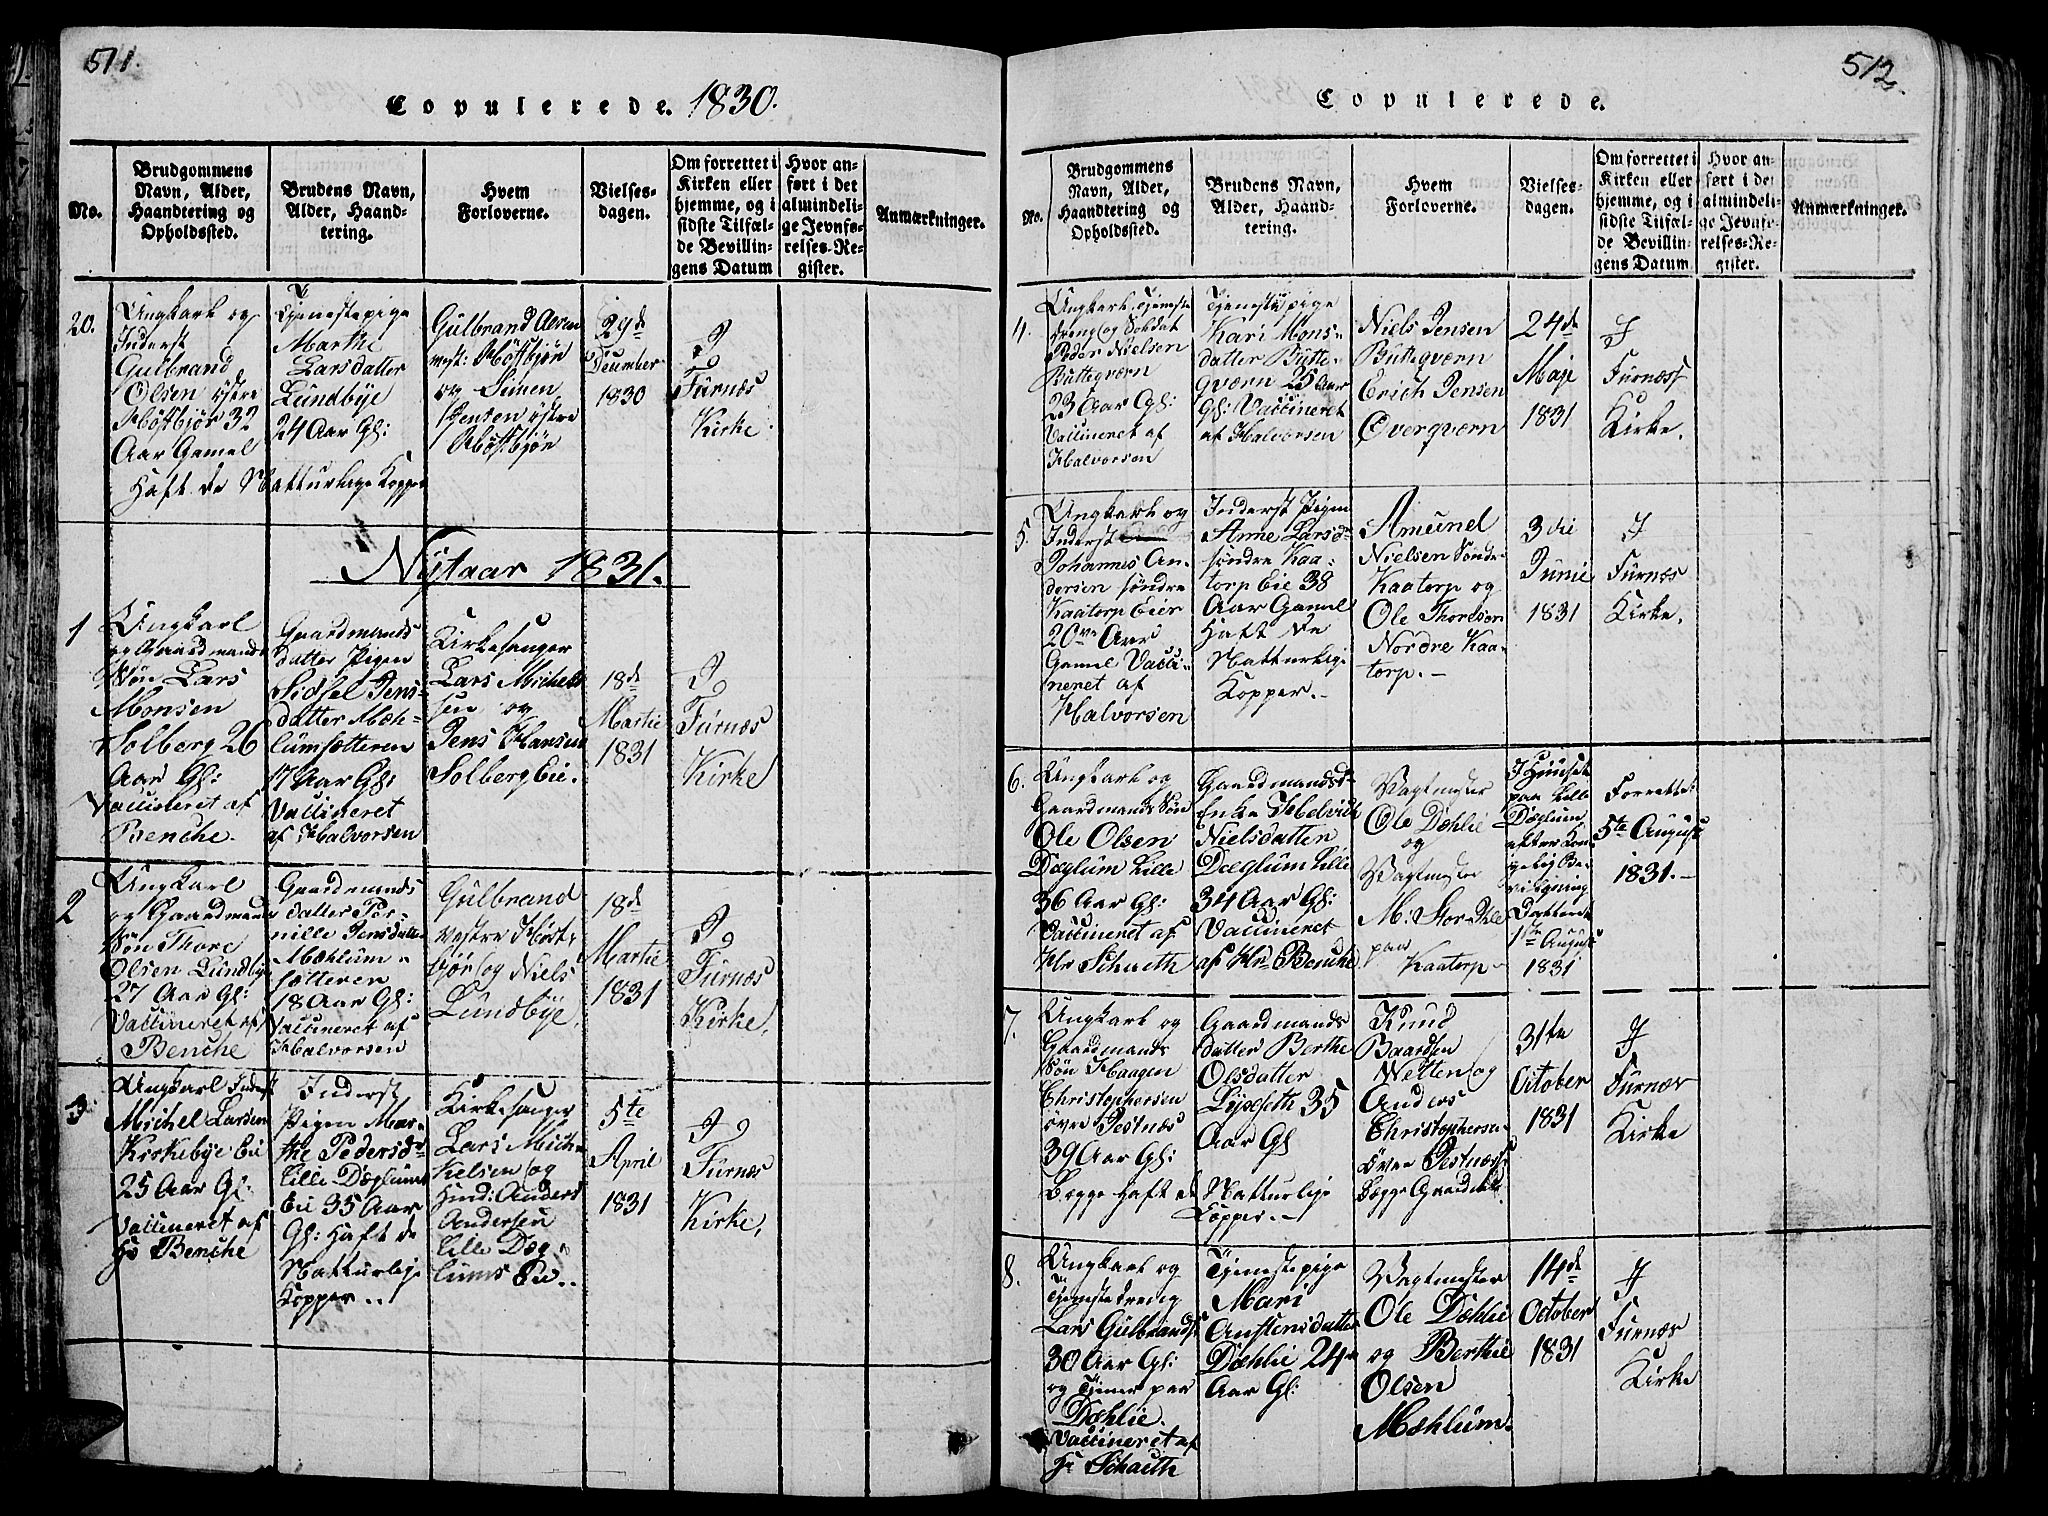 511.
Copulerede. 1830.
No.
Brudgommens
Navn, Alder,
Haandtering og
Opholdssted.
Brudens Navn,
Alder, Haand-
tering.
Hvem
Forloverne.
Vielses-
dagen.
Om forrettet i
Kirken eller
hjemme, og i
sidste Tilfæl-
de Bevillin-
gens Datum
Hvor an-
ført i det
almindeli-
ge Jevnfø-
relses-Re-
gister.
Anmærkninger.
20.
Ungkarl og
Inderst
Gulbrand
Olsen østre
Høstbjør 32
Aar Gamel
Haft de Natturlige Kopper
Tjenestepige
Marthe
Larsdatter
Lundbye
24 Aar Gl:
Gulbrand
Høstbjør
og Simen
Jensen østre
Høstbjør
29de
December
1830
I
Furnæs
Kirke
Nytaar 1831.
1
Ungkarl
og Gaardmands
Søn Lars
Monsen
Solberg 26
Aar Gl:
Vaccineret af
Benche.
Gaardmands
datter Pigen
Sidsel Jens-
datter Mæh-
lumsætteren
17 Aar Gl:
Vaccineret
af Halvorsen
Kirkesanger
Lars Michels
sen og
Jens Hansen
Solberg Eie.
18de
Martie
1831
I
Furnæs
Kirke
2
Ungkarl
og Gaardmans
Søn Thore
Olsen Lundby
27 Aar Gl:
Vaccineret af
Benche
Gaardmands
datter Per-
nille Jensdatter
Mæhlum-
sætteren
18 Aar Gl:
Vaccineret af
Halvorsen
Gulbrand
vestre Høst-
bjør og Niels
Lundbye.
18de
Martie
1831
I
Furnæs
Kirke.
3
Ungkarl Inderst
Michel Larsen
Kirkebye Eie
25 Aar Gl:
Vaccineret af
Hr Benche
Inderst
Pigen Mar-
the Pedersd
Lille Dæglums
Eie 35 Aar
Gl: Haft de
Natturlige
Kopper..
Kirkesanger
Lars Mich-
kelsen og
Anders
Andersen
Lille Dæg-
lums Eie..
5te
April
1831
I
Furnæs
Kirke,
512.
Copulerede.
No.
Brudgommens
Navn, Alder,
Haandtering og
Opholdssted.
Brudens Navn,
Alder, Haand-
tering.
Hvem
Forloverne.
Vielses-
dagen.
Om forrettet i
Kirken eller
hjemme, og i
sidste Tilfæl-
de Bevillin-
gens Datum
Hvor an-
ført i det
almindeli-
ge Jevnfø-
relses-Re-
gister.
Anmærkninger.
4.
Ungkarl, Tjeneste
dreng og Soldat
Peder Nielsen
Butteqværn
23 Aar Gl:
Vaccineret af
Halvorsen
Tjenestepige
Kari Mons-
datter Butte-
qværn 25 Aar
Gl: Vaccineret
af Halvorsen
Niels Jensen
Butteqværn
Erich Jensen
Overqværn
24de
Maje
1831
I
Furnæss
Kirke.
5.
Ungkarl og
Inderst
Johannes An-
dersen søndre
Kaatorp Eier
20ve Aar
Gamel Vacci-
neret af
Halvorsen
Inderst Pigen
Anne Larsd
søndre Kaa-
torp Eie 38
Aar Gamel
Haft de
Natturlige
Kopper.-
Amund
Nielsen Søndre
Kaatorp og
Ole Thoresen
Nordre Kaa-
torp.-
3die
Junie
1831
I
Furnæs
Kirke.
6.
Ungkarl og
Gaardmands Søn
Ole Olsen
Dæglum Lille
36 Aar Gl:
Vaccineret af
Hr Schueth
Gaardmands
Enke Helvich
Nielsdatter
Dæglum Lille
34 Aar Gl:
Vaccineret
af Hr Benche
Vagtmester
Ole Dæhlie
og
Vagtmester
M: Stor-Ihle
paa
Kaatorp-
I Huuset
paa Lille
Dæglum
efter Kon
gelig Be-
vilgning
Datteret
1ste August
1831
Forrettet
5te August
1831.-
7.
Ungkarl og
Gaardmands
Søn Haagen
Christophersen
øvre Jestnæs
39 Aar Gl:
Begge Haft d Natturlige
Kopper.-
Gaardmands
datter Berthe
Olsdatter
Lyseseth 35
Aar Gl
Knud
Baardsen
Wetten og
Anders
Christophersen
øvre Jestnæss
Begge Gaardmd
31te
October
1831
I
Furnæs
Kirke
8.
Ungkarl og
Tjenestedreng
Lars Gulbrands
30 Aar Gl:
og Tjener paa
Dæhlie.
Vaccineret af
Hr Schueth
Tjenestepige
Mari
Anstensdatter
Dæhlie 24
Aar Gl:
Vagtmester
Ole Dæhlie
og Berthe
Olsen
Mæhlum.
14de
October
1831
I
Furnæs
Kirke